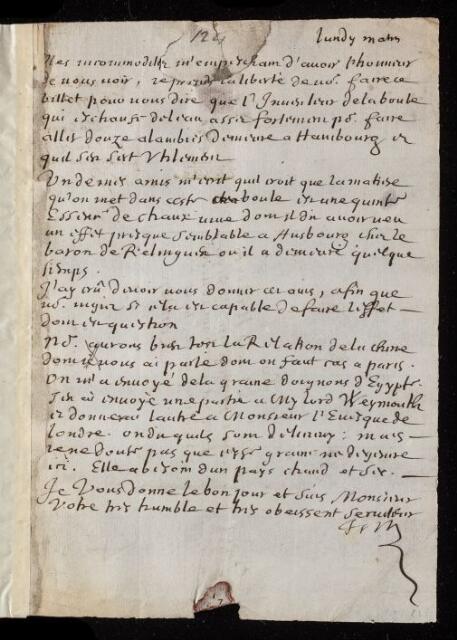 124
lundy matin
Mes incommoditez m'empescham d'avoir l'honneur
de vous voir, je prends la liberté de vo9. faire ce
billet pour vous dire que l'Inventeur de la boule
qui eschaufe de l'eau assez fortement po9. faire
aller douze alambics demeure a Hambourg et
qu'il s'en sert
Un de mes amis m'écrit qu'il croit que la matiere
qu'on met dans ceste boule est une quinte
Essence de chaux vive dont il dit avoir veu
un effet presque semblable a Ausbourg chez le
baron de Relingues ou il a demeuré quelque
temps.
J'ay crû devoir vous donner cet avis, afin que
vo9. voyiez si cela est capable de faire l'effet
dont est question
No9. aurons bien tost la Relation de la chine
dont je vous ai parlé dont on fait cas a paris.
On m'a envoyé de la graine d'oignons d'Egypte.
J'en ai envoyé une partie a My lord Weymouth
et donnerai l'autre a Monsieur l'Evesque de
londre. on dit qu'ils sont : mais
je ne doute pas que cette graine ne
ici. Elle a besoin d'un pays chaud et sec.
Je Vous donne le bon jour et suis Monsieur
Votre tres humble et tres obeissent serviteur